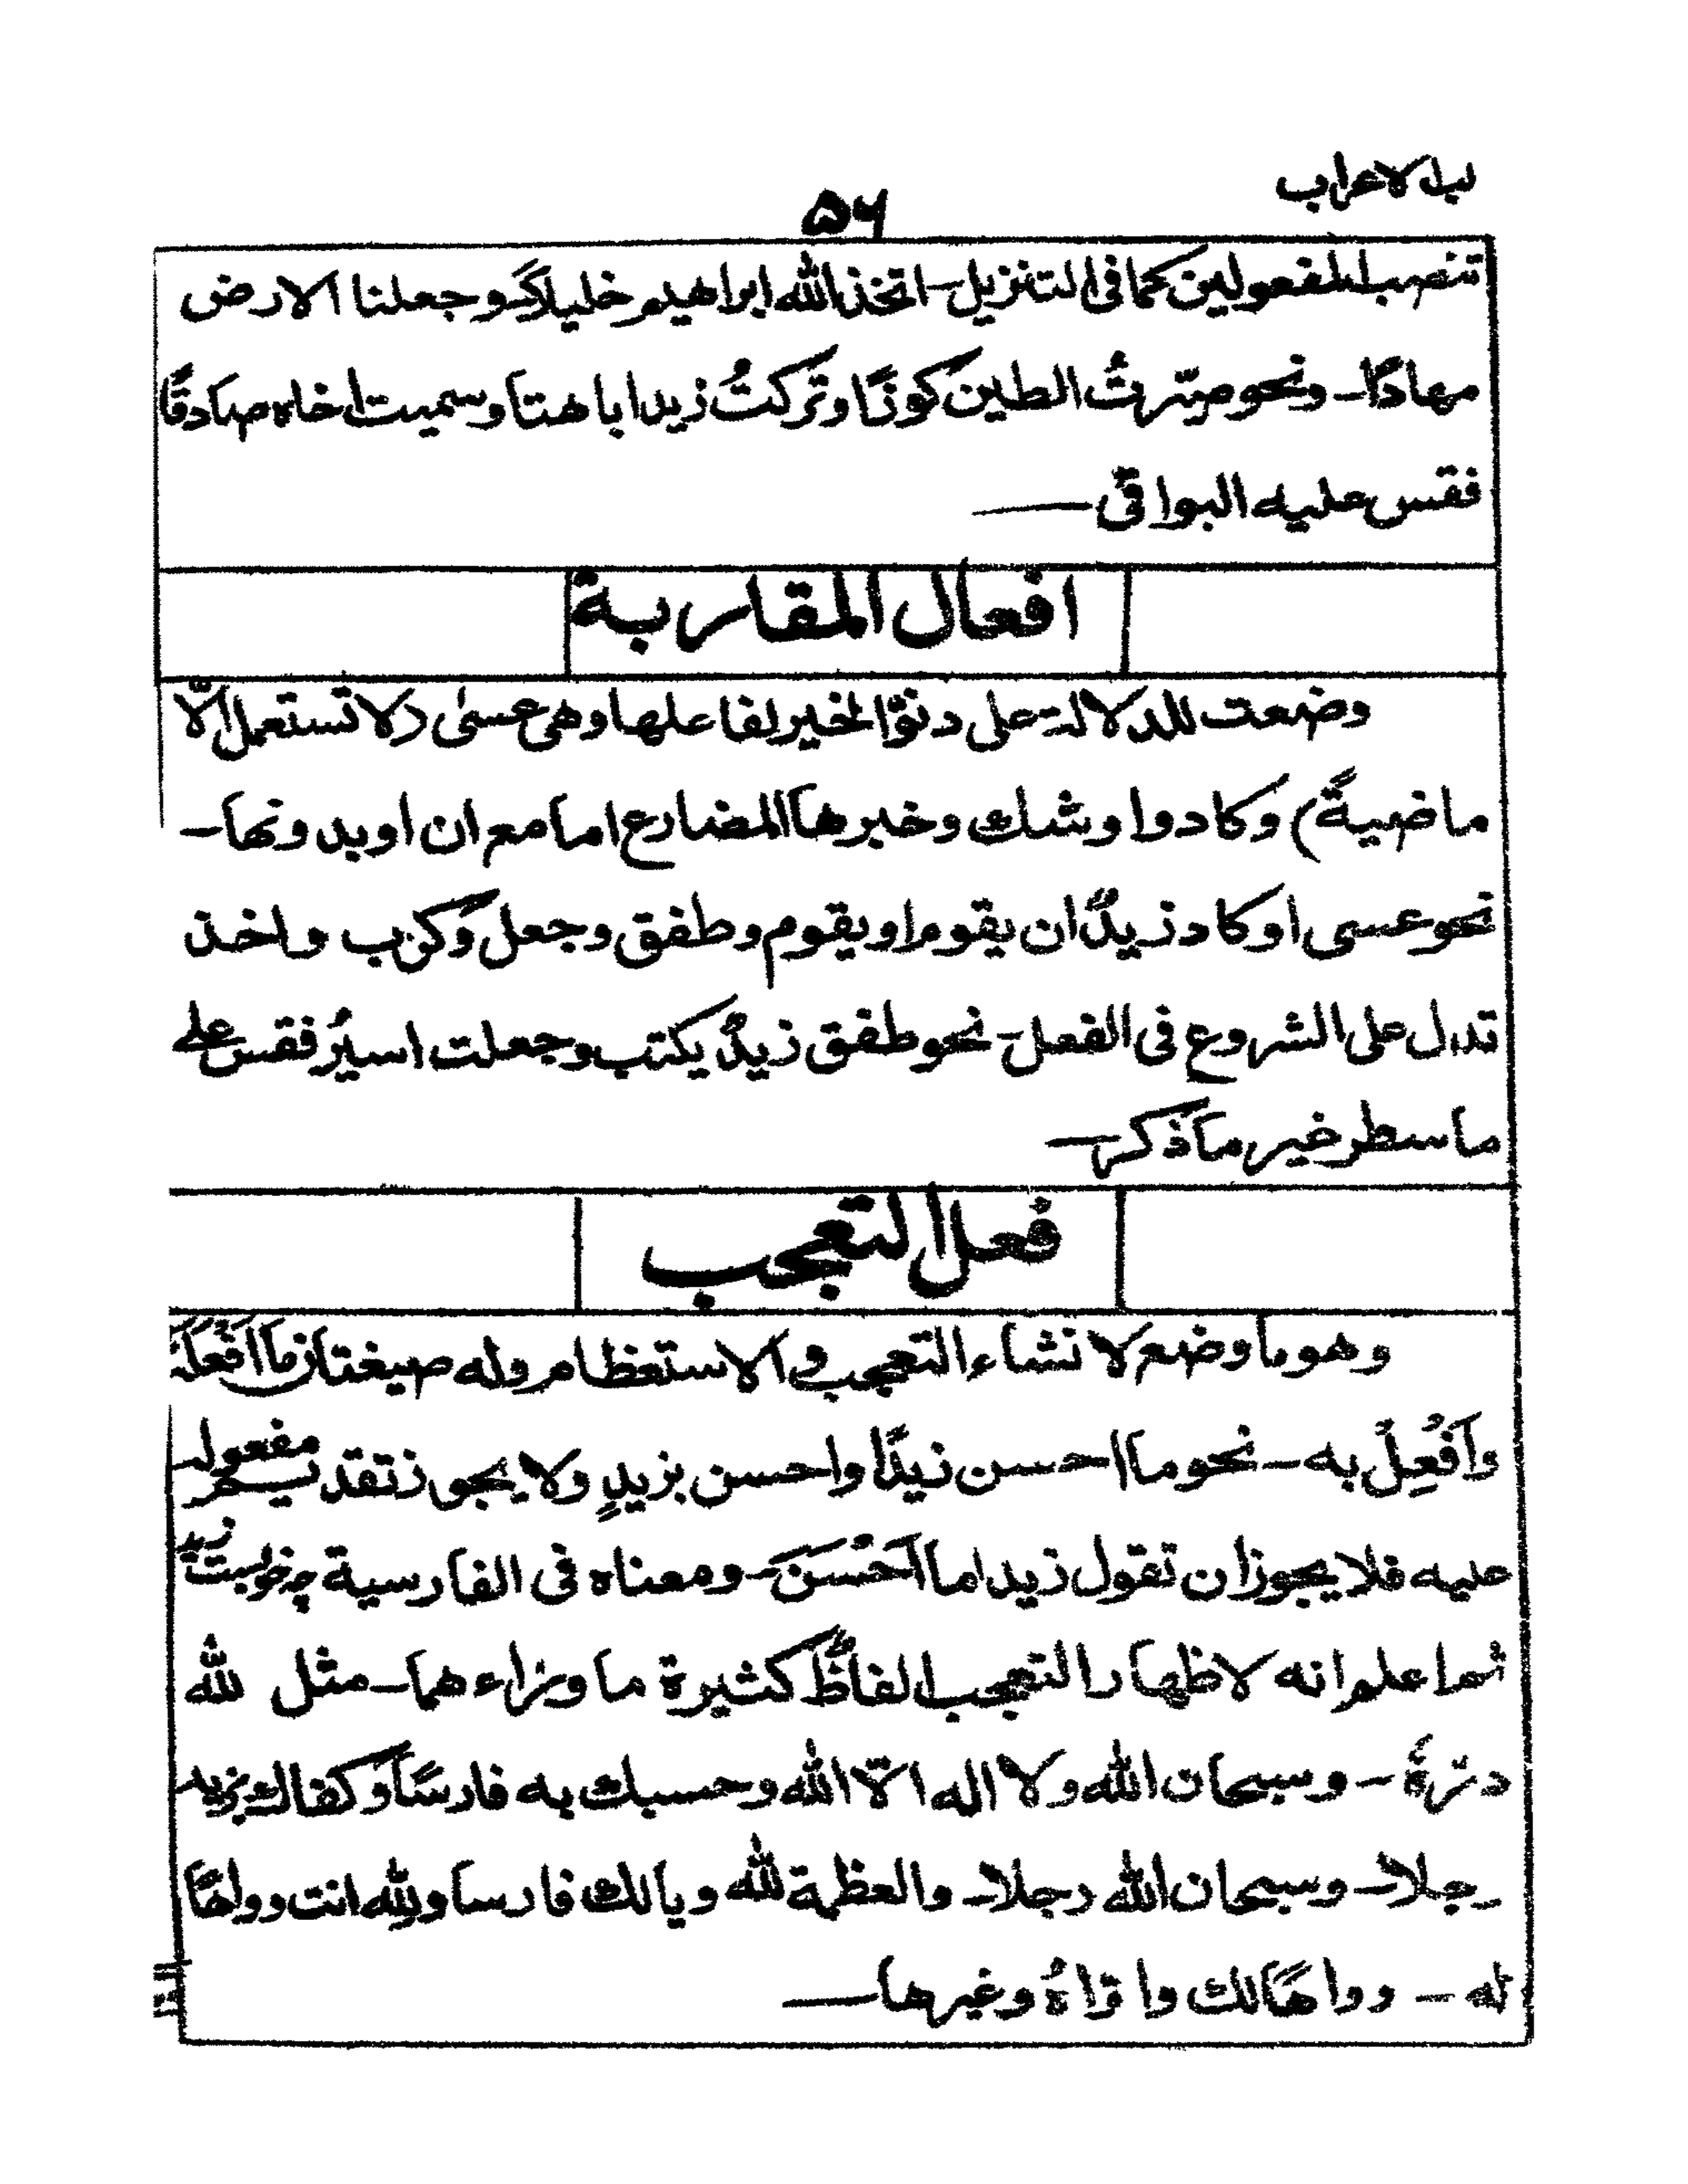 لب الاعراب
۵۶
تنصب المفعولين كما فى التنزيل - اتخذ الله ابراهيم خليلاً وجعلنا الارض
مهادًا - ونحو صيّرتُ الطينَ كوزًا وتَركتُ زيدا باهتا وسميت اخاه صادقًا
فقس عليه البواقى —
افعال المقاربة
وضعت للدلالة على دنوّ الخبر لفاعلها وهى عسىٰ (لا تستعمل الّا
ماضيةً) وكاد واوشك وخبرها المضارع اما مع ان او بدونها -
نحو عسى اوكاد زيدٌ ان يقوم او يقوم وطفق وجعل وكرب واخذ
تدل على الشروع فى الفعل - نحو طفق زيدٌ يكتب وجعلت اسيرُ فقس على
ما سطر خير ما ذكر —
فعل التعجب
وهو ما وضع لانشاء التعجب والاستعظام وله صيغتان مَا اَفْعَلَهٗ
وَاَفْعِلْ به - نحو ما احسن زيدًا واحسن بزيدٍ ولا يجوز تقديم مفعوله
عليه فلا يجوز ان تقول زيدا ما اَحْسَنَ - ومعناه فى الفارسية چه خوبست زيد
ثم اعلم انه لاظهار التعجب الفاظٌ كثيرة ما وراءهما - مثل لله
درهٗ - وسبحان الله ولا اله الّا الله وحسبك به فارسًا وكفاك بزيد
رجلا - وسبحان الله رجلا - والعظمة لله ويالك فارسا ولله انت وواهًا
له - وواهًا لك وا وُاهٌ وغيرها —